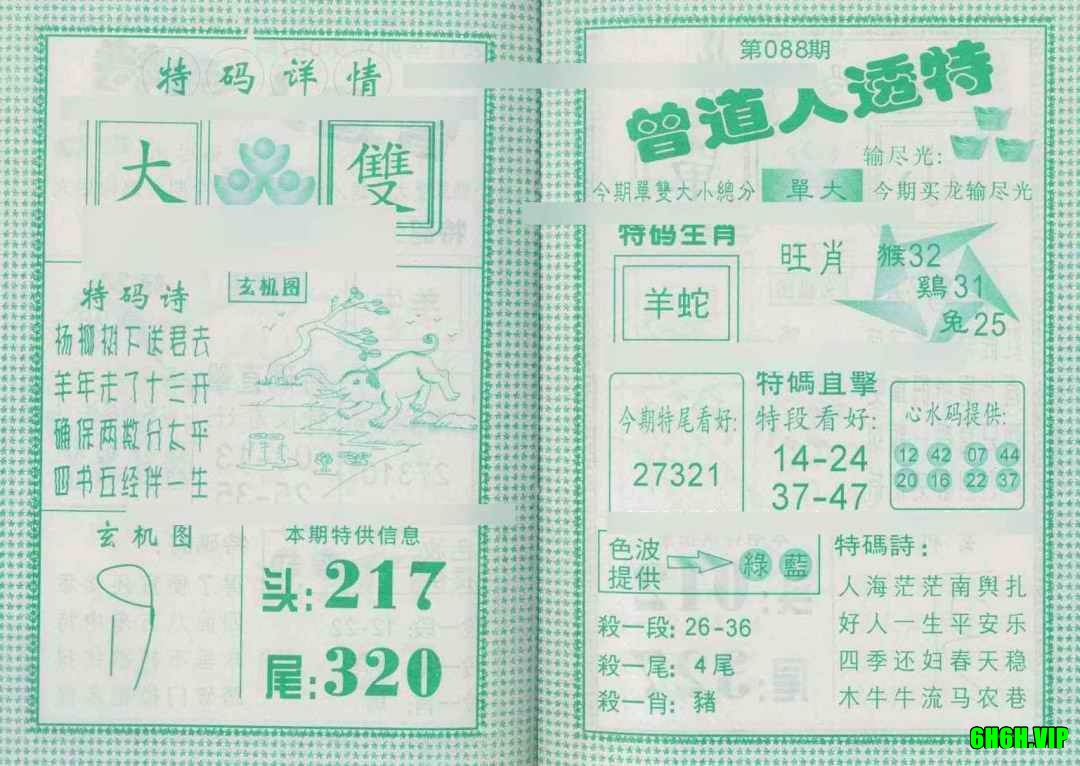 特码详情
大
雙
特码诗
玄机图
杨柳树下送君去
羊年走了十三开
确保两数分太平
四书五经伴一生
玄机图
本期特供信息
头:217
尾:320
第088期
曾道人透特
输尽光:
今期單雙大小總分 單大 今期买龙输尽光
特码生肖
羊蛇
旺肖
猴32
鷄31
兔25
今期特尾看好:
27321
特碼直擊
特段看好:
14-24
37-47
心水码提供:
12 42 07 44
20 16 22 37
色波
提供
綠 藍
殺一段: 26-36
殺一尾: 4尾
殺一肖: 豬
特碼詩:
人海茫茫南舆扎
好人一生平安乐
四季还妇春天稳
木牛牛流马农巷
6H6H.VIP